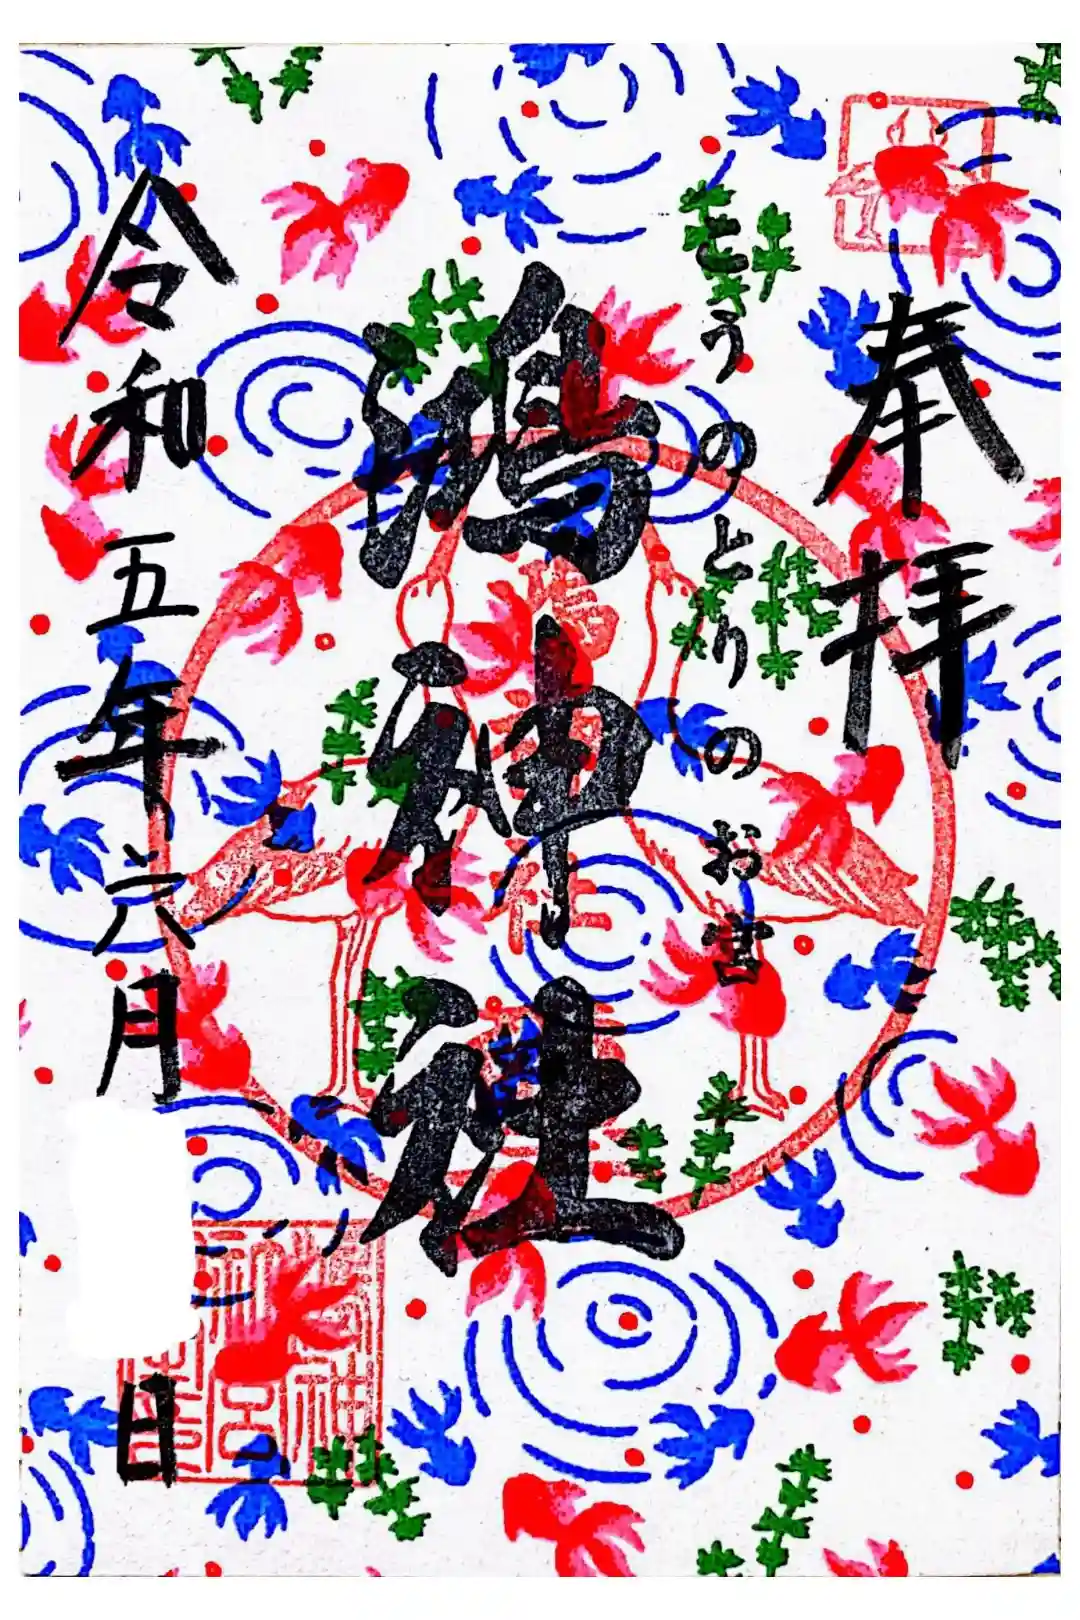 奉拝
こうのとりのお宮
鴻神社
鴻神社
令和五年六月 日